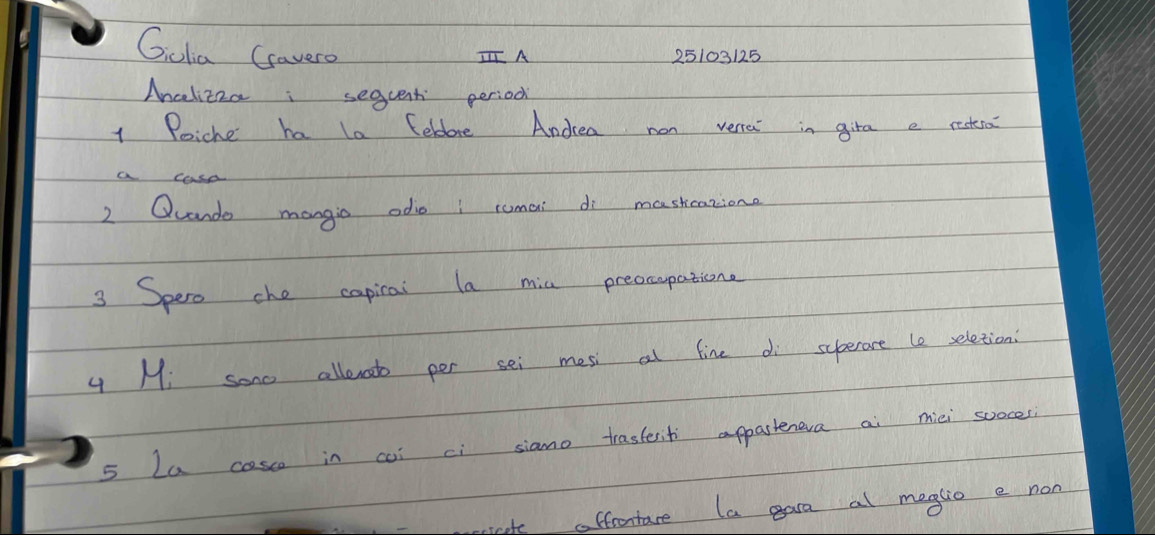 Giulia Cravero III A 25/03/25
Analizza i seguenti periodi
1 Poiche ha la febbre Andrea non verrà in gita e resterà
a casa
2 Quando mangio odio i rumori di masticazione
3 Spero che capirai la mia preoccupazione
4 Mi sono allenato per sei mesi al fine di superare le selezioni
5 La casa in cui ci siamo trasferiti apparteneva ai miei suoceri
affrontare la gara al meglio e non